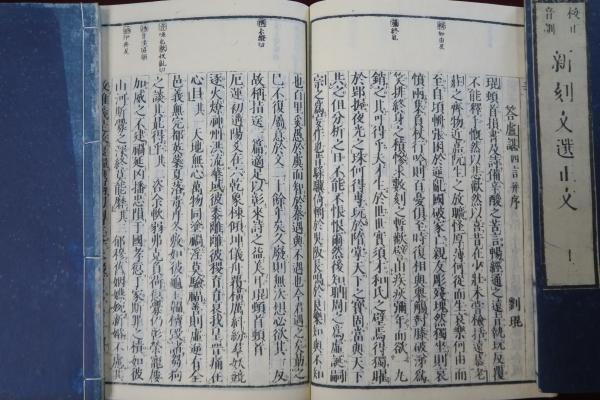 校正
音訓
新刻文選正文
答盧諶 四言并序
劉琨
琨頓首損書及詩備辛酸之苦言暢經通之遠旨執玩反覆
不能釋手慨然以悲歡然以喜昔在少壯未嘗檢括遠慕老
莊之齊物近嘉阮生之放曠怪厚薄何從而生哀樂何由而
至自頃輈張困於逆亂國破家亡親友彫殘塊然獨坐則哀
憤兩集負杖行吟則百憂俱至時復相與舉觴對膝破涕為
笑排終身之積慘求數刻之暫歡譬由疾疢彌年而欲一丸
銷之其可得乎夫才生於世世實須才和氏之璧焉得獨曜
於郢握夜光之珠何得專玩於隋掌天下之寶固當與天下
共之但分析之日不能不悵恨爾然後知聃周之為虛誕嗣
宗之為妄作也昔騄驥倚輈於吳坂長鳴於良樂知與不知
也百里奚愚於虞而智於秦遇與不遇也今君遇之矣勗之
已不復屬意於文二十餘年矣久廢則無次想必欲其一反
故稱指送一篇適足以彰來詩之益美耳琨頓首頓首
厄運初遘陽爻在六乾象棟傾坤儀舟覆橫厲糾紛群妖競
逐火燎神州洪流華域彼黍離離彼稷育育哀我皇晉痛在
心目其一 天地無心萬物同塗禍淫莫驗福善則虛逆有全
邑義無完都英蘂夏落毒卉冬敷如彼龜玉韞櫝毀諸芻狗
之談其最得乎其二 咨余軟弱弗克負荷愆釁仍彰榮寵屢
加威之不建禍延凶播忠隕于國孝愆于家斯罪之積如彼
山河斯釁之深終莫能磨其三 郁穆舊姻嬿婉新婚不慮其